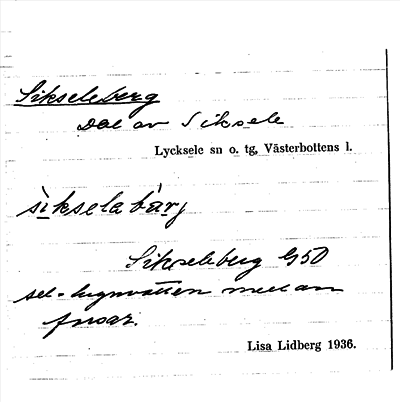 Sikseleberg
Del av Siksele
Lycksele sn o. tg, Västerbottens l.
sìksela bàrj
Sikseleberg G50
sel = lugnvatten mellan
forsar.
Lisa Lidberg 1936.